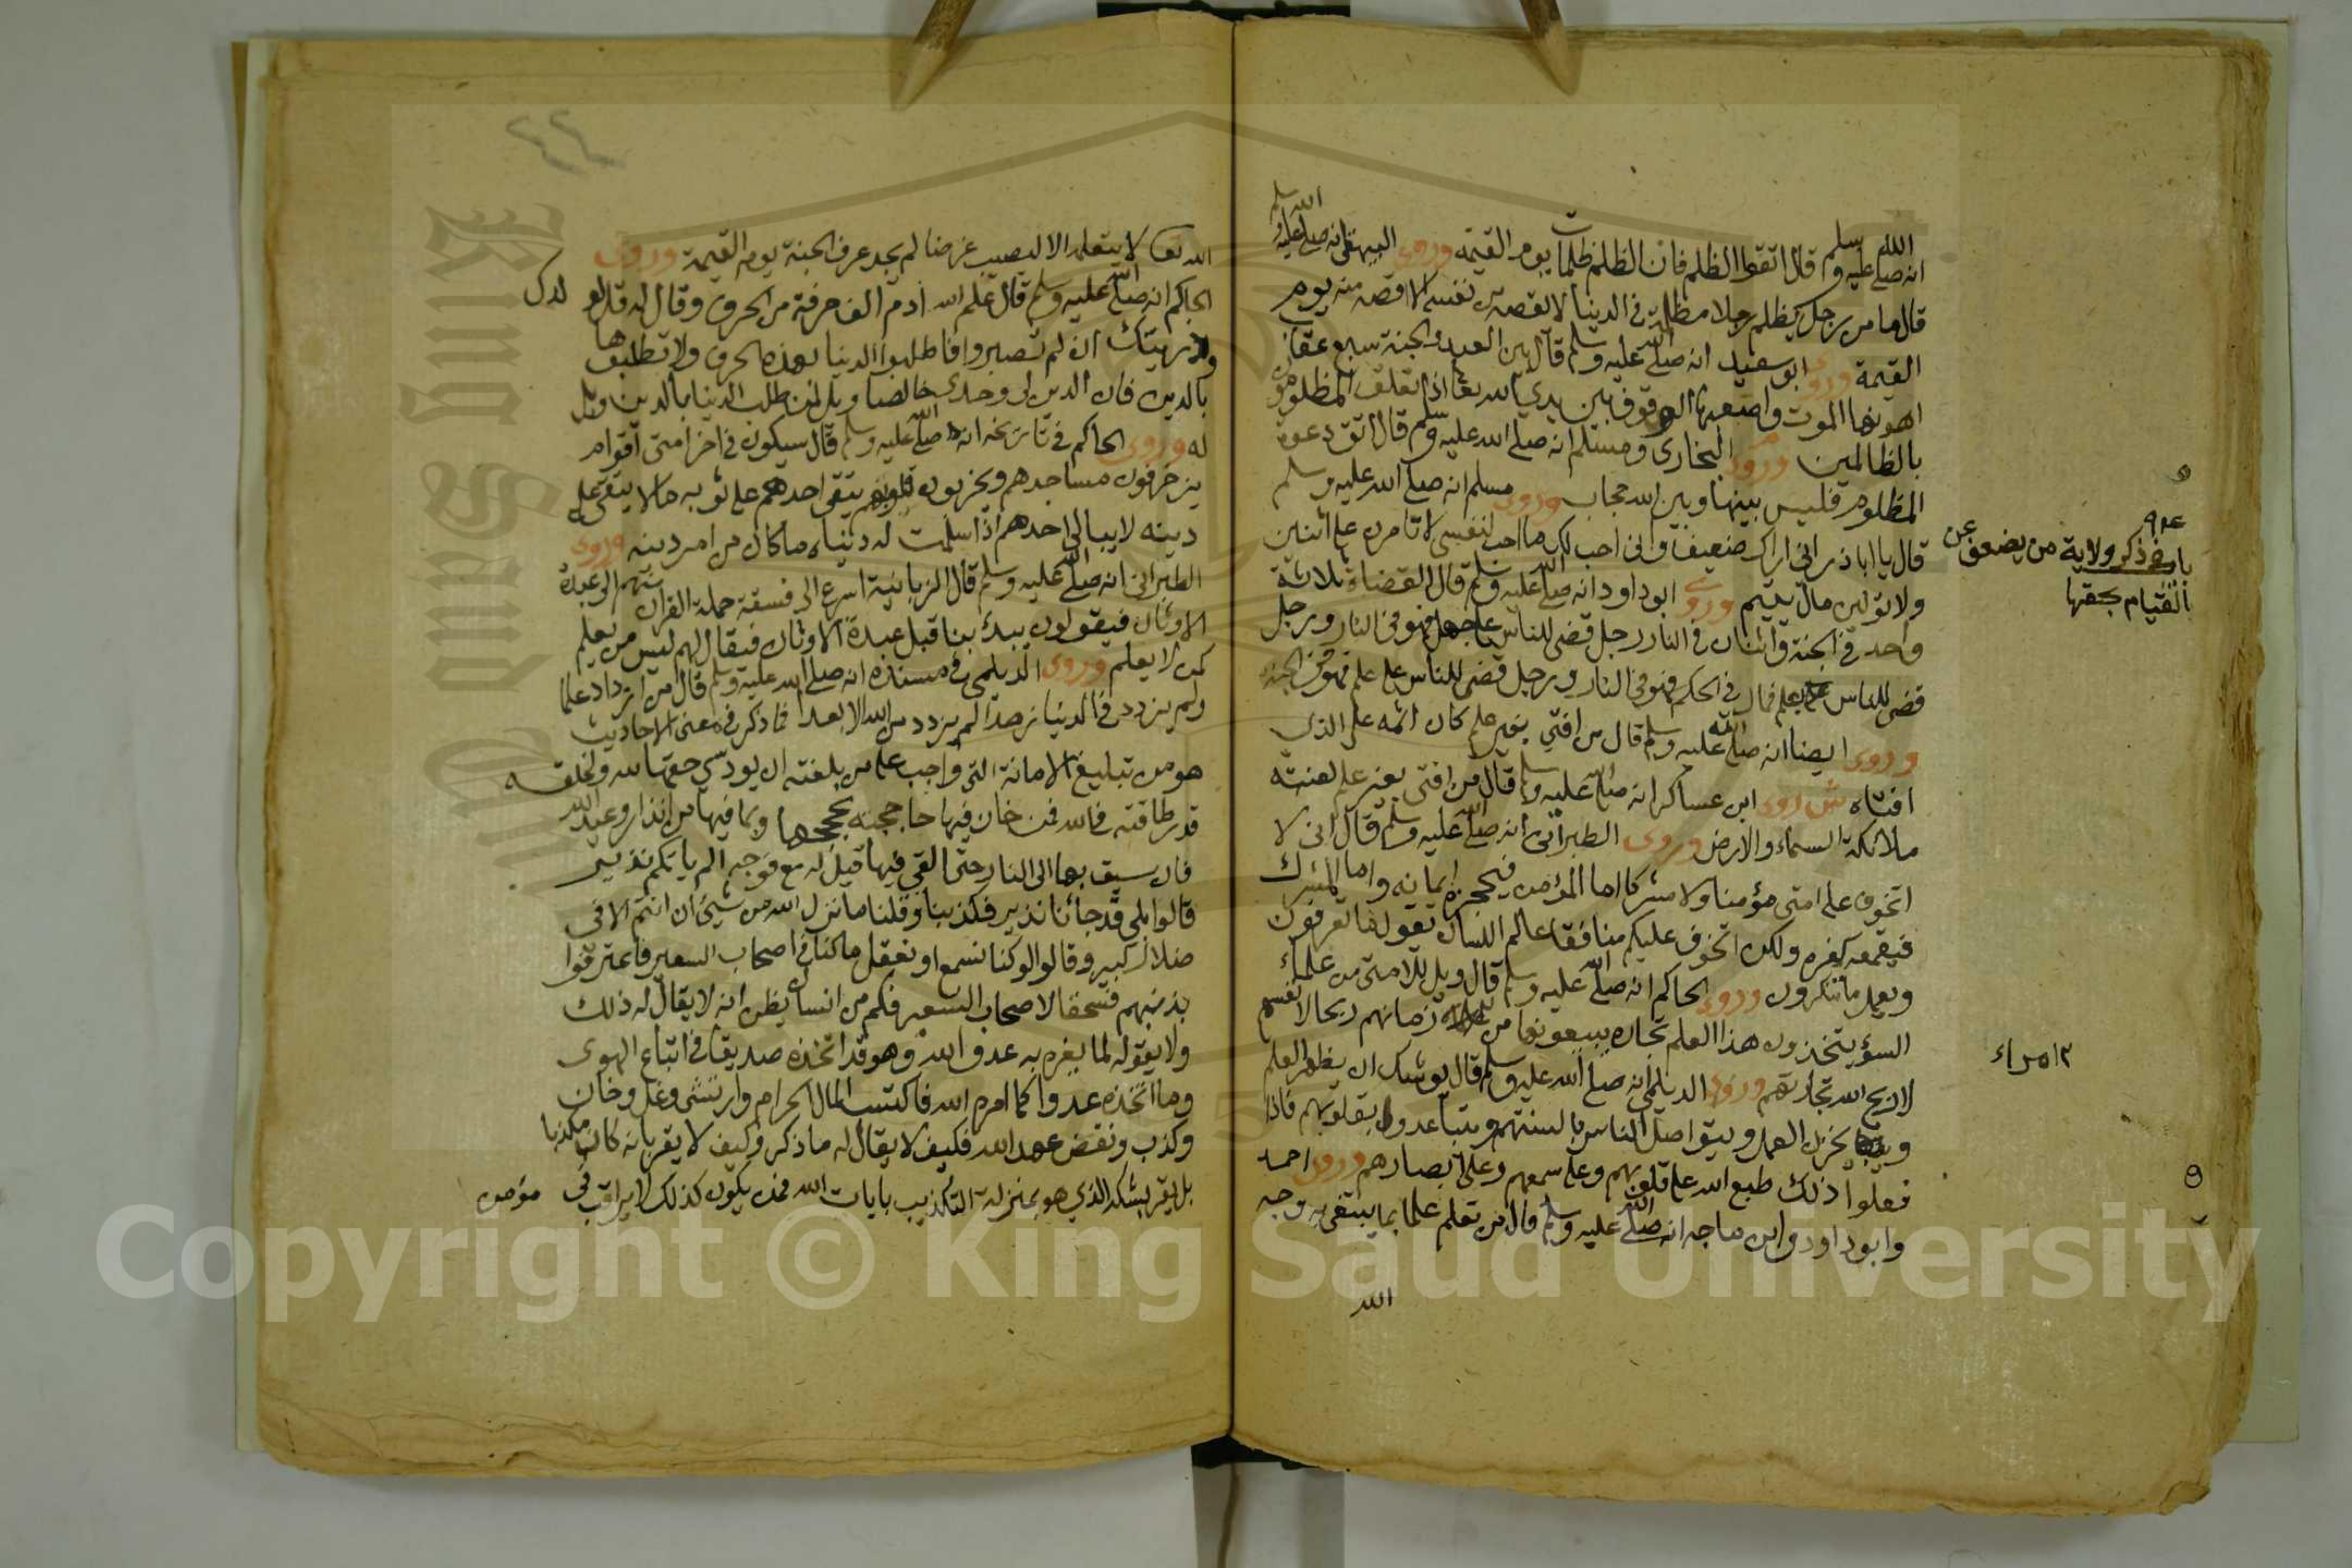 انه صلى الله عليه وسلم قال اتقوا الظلم فان الظلم ظلمات يوم القيمة وروى البيهقي انه صلى الله عليه وسلم
قال ما من رجل يظلم رجلا مظلمة في الدنيا لا يقصه من نفسه الا اقصه منه يوم
القيمة وروى ابو سعيد انه صلى الله عليه وسلم قال بين العبد والجنة سبع عقاب
اهونها الموت واصعبها الوقوف بين يدي الله تعا اذا تعلق المظلومون
بالظالمين وروى البخاري ومسلم انه صلى الله عليه وسلم قال اتق دعوة
المظلوم فليس بينها وبين الله حجاب وروى مسلم انه صلى الله عليه وسلم
قال يا ابا ذر اني اراك ضعيفا واني احب لك ما احب لنفسي لا تامرن على اثنين
ولا تولين مال يتيم وروى ابو داود انه صلى الله عليه وسلم قال القضاة ثلاثة
واحد في الجنة واثنان في النار رجل قضى للناس على جهل فهو في النار ورجل
قضى للناس بعلم فمال في الحكم فهو في النار ورجل قضى للناس على علم فهو في الجنة
وروى ايضا انه صلى الله عليه وسلم قال من افتي بغير علم كان اثمه على الذي
افتاه وروى ابن عساكر انه صلى الله عليه وسلم قال من افتى بغير علم لعنته
ملائكة السماء والارض وروى الطبراني انه صلى الله عليه وسلم قال اني لا
اتخوف على امتى مؤمنا ولا مشركا اما المؤمن فيحجزه ايمانه واما المشرك
فيقمعه كفره ولكن اتخوف عليكم منافقا عالم اللسان يقول ما تعرفون
ويعمل ما تنكرون وروى الحاكم انه صلى الله عليه وسلم قال ويل للامتى من علماء
السؤ يتخذون هذا العلم تجارة يبيعونها من زمانهم ربحا لانفسهم
لا اربح الله تجارتهم وروى الديلمي انه صلى الله عليه وسلم قال يوشك ان يظهر العلم
ويخزن العمل ويتواصل الناس بالسنتهم ويتباعدون بقلوبهم فاذا
فعلوا ذلك طبع الله على قلوبهم وعلى سمعهم وعلى ابصارهم وروى احمد
وابو داود وابن ماجه انه صلى الله عليه وسلم قال من تعلم علما مما يبتغى به وجه
الله
باب في ذكر ولاية من يضعف عن
القيام بحقها
امراء
الله تعا لا يتعلمه الا ليصيب عرضا لم يجد عرف الجنة يوم القيمة وروى
الحاكم انه صلى الله عليه وسلم قال علم الله ادم الف حرفة من الحرف وقال له قل لولدك
وذريتك ان لم تصبروا فاطلبوا الدنيا بهذه الحرف ولا تطلبوها
بالدين فان الدين لي وحدي خالصا ويل لمن طلب الدنيا بالدين ويل
له وروى الحاكم في تاريخه انه صلى الله عليه وسلم قال سيكون في اخر امتى اقوام
يزخرفون مساجدهم ويخربون قلوبهم يتقي احدهم على ثوبه ما لا يتقي على
دينه لا يبالي احدهم اذا سلمت له دنياه ما كان من امر دينه وروى
الطبراني انه صلى الله عليه وسلم قال الزبانية اسرع الى فسقة حملة القران منهم الى عبدة
الاوثان فيقولون يبدئ بنا قبل عبدة الاوثان فيقال لهم ليس من يعلم
كمن لا يعلم وروى الديلمي في مسنده انه صلى الله عليه وسلم قال من ازداد علما
ولم يزدد في الدنيا زهدا لم يزدد من الله الا بعدا فما ذكر في معنى الاحاديث
هو من تبليغ الامانة التي واجب على من بلغته ان يودي حقها لله ولخلقه
قدر طاقته فالله فمن خان فيها حاججته بحججها وبما فيها من انذار وعيد الله
فان سيق بها الى النار حتى القي فيها قيل له مع فوجه الم ياتكم نذير
قالوا بلى قد جائنا نذير فكذبنا وقلنا ما نزل الله من شيئ ان انتم الا في
ضلال كبير وقالوا لو كنا نسمع او نعقل ما كنا في اصحاب السعير فاعترفوا
بذنبهم فسحقا لاصحاب السعير فكم من انسان يظن انه لا يقال له ذلك
ولا يقوله لما يغره به عدو الله وهو قد اتخذه صديقا في اتباع الهوى
وما اتخذه عدوا كما امره الله فاكتسب المال الحرام وارتشى وغل وخان
وكذب ونقض عهد الله فكيف لا يقال له ما ذكر وكيف لا يقر بانه كان مكذبا
بل يقر بشكه الذي هو بمنزلة التكذيب بايات الله فمن يكون كذلك لا يراقب في مؤمن
Copyright © King Saud University